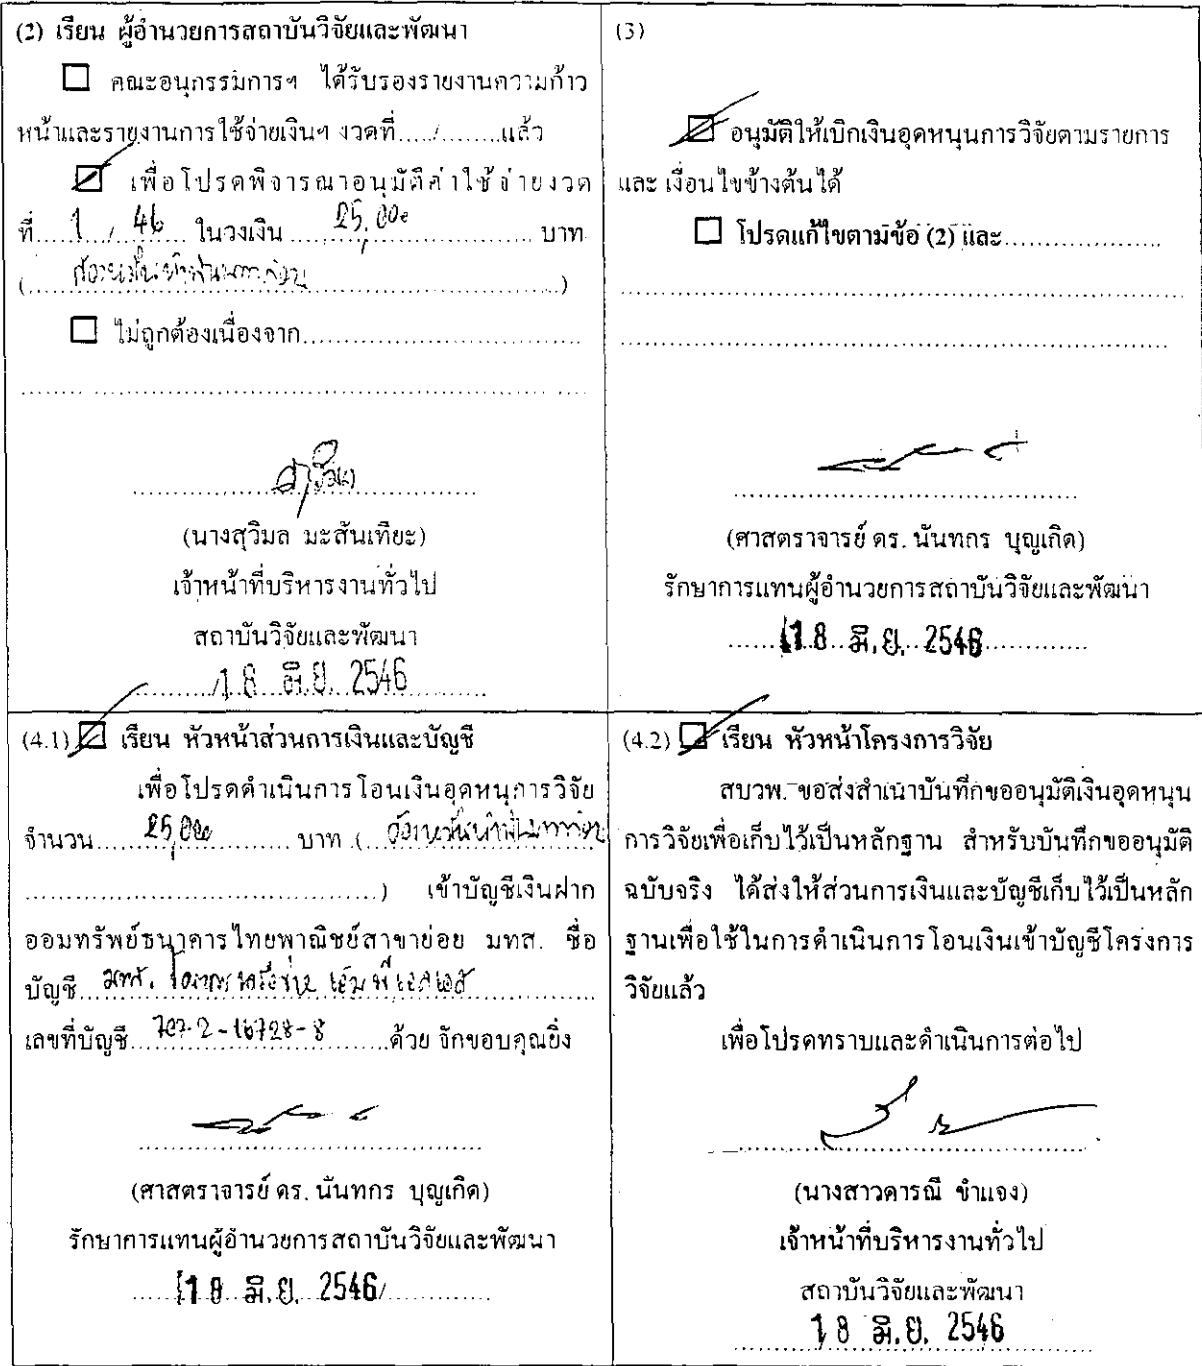 (2) เรียน ผู้อำนวยการสถาบันวิจัยและพัฒนา
คณะอนุกรรมการฯ ได้รับรองรายงานความก้าว
หน้าและรายงานการใช้จ่ายเงินฯ งวดที่...../.........แล้ว
เพื่อโปรดพิจารณาอนุมัติค่าใช้จ่ายงวด
ที่ 1 / 46 ในวงเงิน 25,000 บาท
(สองหมื่นห้าพันบาทถ้วน)
ไม่ถูกต้องเนื่องจาก
(นางสุวิมล มะสันเทียะ)
เจ้าหน้าที่บริหารงานทั่วไป
สถาบันวิจัยและพัฒนา
18 มิ.ย. 2546
(3)
อนุมัติให้เบิกเงินอุดหนุนการวิจัยตามรายการ
และ เงื่อนไขข้างต้นได้
โปรดแก้ไขตามข้อ (2) และ
(ศาสตราจารย์ ดร. นันทกร บุญเกิด)
รักษาการแทนผู้อำนวยการสถาบันวิจัยและพัฒนา
18 มิ.ย. 2546
(4.1) เรียน หัวหน้าส่วนการเงินและบัญชี
เพื่อโปรดดำเนินการโอนเงินอุดหนุนการวิจัย
จำนวน 25,000 บาท (สองหมื่นห้าพันบาทถ้วน
) เข้าบัญชีเงินฝาก
ออมทรัพย์ธนาคารไทยพาณิชย์สาขาย่อย มทส. ชื่อ
บัญชี มทส. โครงการ
เลขที่บัญชี 707-2-16728-8 ด้วย จักขอบคุณยิ่ง
(ศาสตราจารย์ ดร. นันทกร บุญเกิด)
รักษาการแทนผู้อำนวยการสถาบันวิจัยและพัฒนา
18 มิ.ย. 2546
(4.2) เรียน หัวหน้าโครงการวิจัย
สบวพ. ขอส่งสำเนาบันทึกขออนุมัติเงินอุดหนุน
การวิจัยเพื่อเก็บไว้เป็นหลักฐาน สำหรับบันทึกขออนุมัติ
ฉบับจริง ได้ส่งให้ส่วนการเงินและบัญชีเก็บไว้เป็นหลัก
ฐานเพื่อใช้ในการดำเนินการโอนเงินเข้าบัญชีโครงการ
วิจัยแล้ว
เพื่อโปรดทราบและดำเนินการต่อไป
(นางสาวดารณี ขำแจง)
เจ้าหน้าที่บริหารงานทั่วไป
สถาบันวิจัยและพัฒนา
18 มิ.ย. 2546